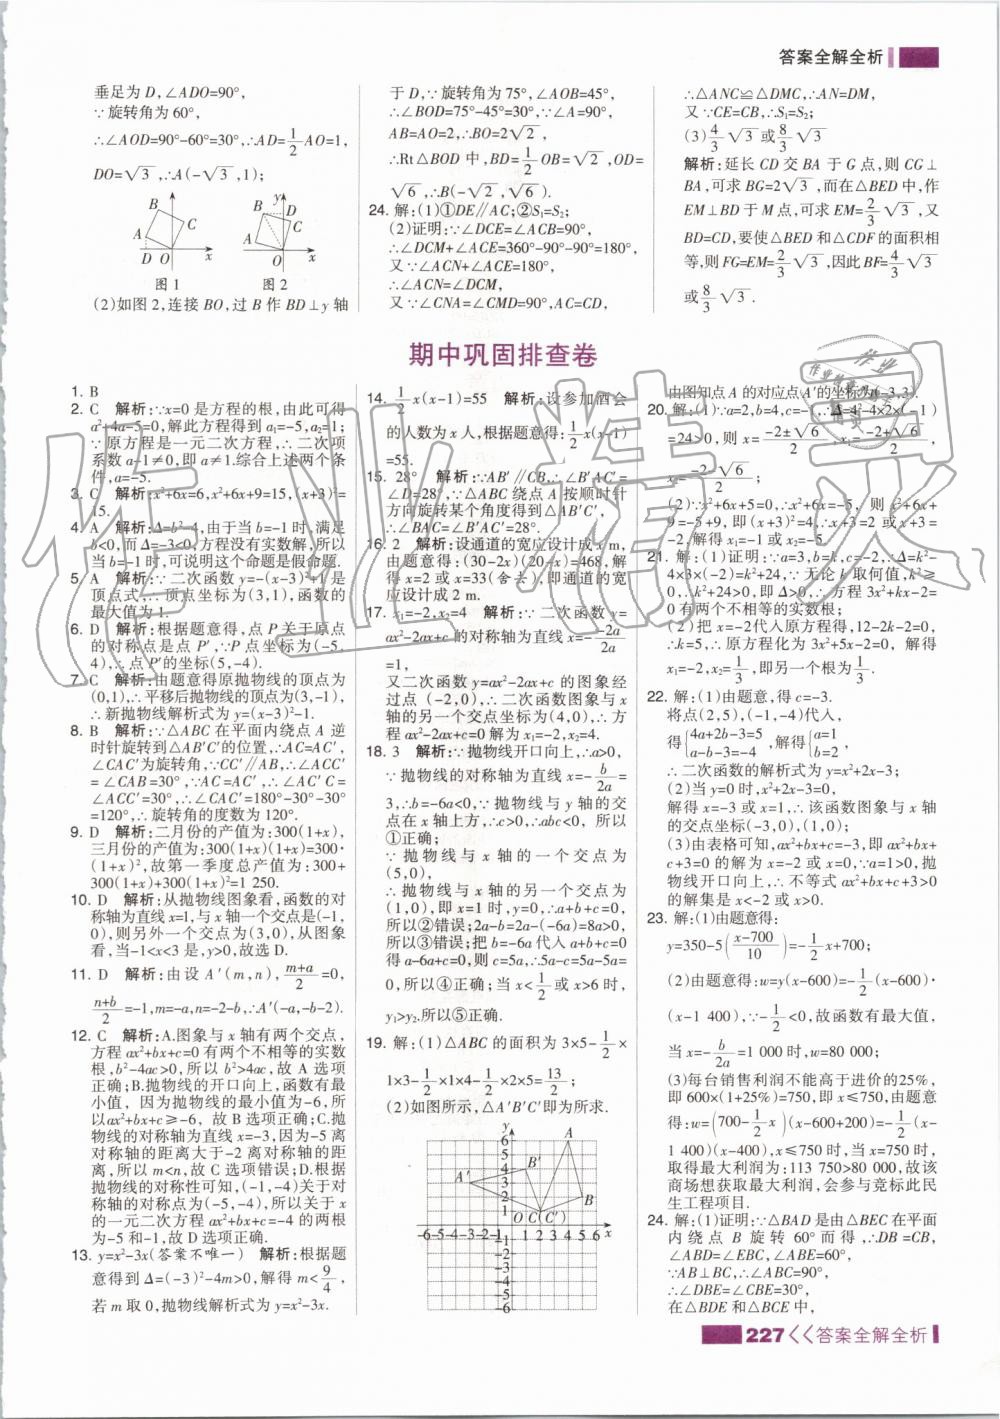 答案全解全析
垂足为 D,∠ADO=90°,
∵旋转角为 60°,
∴∠AOD=90°-60°=30°,∴AD=1/2AO=1,
DO=√3,∴A(-√3,1);
B C A D O x
图 1
B D C A O x
图 2
(2)如图 2,连接 BO,过 B 作 BD⊥y 轴
于 D,∵旋转角为 75°,∠AOB=45°,
∴∠BOD=75°-45°=30°,∵∠A=90°,
AB=AO=2,∴BO=2√2,
∴Rt△BOD 中,BD=1/2OB=√2,OD=
√6,∴B(-√2,√6).
24. 解:(1)①DE∥AC;②S₁=S₂;
(2)证明:∵∠DCE=∠ACB=90°,
∴∠DCM+∠ACE=360°-90°-90°=180°,
又∵∠ACN+∠ACE=180°,
∴∠ACN=∠DCM,
又∵∠CNA=∠CMD=90°,AC=CD,
∴△ANC≌△DMC,∴AN=DM,
又∵CE=CB,∴S₁=S₂;
(3)4/3√3或8/3√3
解析:延长 CD 交 BA 于 G 点,则 CG⊥
BA,可求 BG=2√3,而在△BED 中,作
EM⊥BD 于 M 点,可求得 EM=2/3√3,又
BD=CD,要使△BED 和△CDF 的面积相
等,则 FG=EM=2/3√3,因此BF=4/3√3
或8/3√3.
期中巩固排查卷
1. B
2. C 解析:∵x=0 是方程的根,由此可得
a²+4a-5=0,解此方程得到 a₁=-5,a₂=1;
∵原方程是一元二次方程,∴二次项
系数 a-1≠0,即 a≠1.综合上述两个条
件,a=-5.
3. C 解析:x²+6x=6,x²+6x+9=15,(x+3)²=
15.
4. A 解析:Δ=b²-4,由于当 b=-1 时,满足
b<0,而Δ=-3<0,方程没有实数解,所以
当 b=-1 时,可说明这个命题是假命题.
5. A 解析:∵二次函数 y=-(x-3)²+1 是
顶点式,∴顶点坐标为(3,1),函数的
最大值为 1.
6. D 解析:根据题意得,点 P 关于原点
的对称点是点 P′,∵P 点坐标为(-5,
4),∴点 P′的坐标(5,-4).
7. C 解析:由题意得原抛物线的顶点为
(0,1),∴平移后抛物线的顶点为(3,-1),
∴新抛物线解析式为 y=(x-3)²-1.
8. B 解析:∵△ABC 在平面内绕点 A 逆
时针旋转到△AB′C′的位置,∴AC=AC′,
∠CAC′为旋转角,∵CC′∥AB,∴∠ACC′
=∠CAB=30°,∵AC=AC′,∴∠AC′C=
∠ACC′=30°,∴∠CAC′=180°-30°-30°
=120°,∴旋转角的度数为 120°.
9. D 解析:二月份的产值为:300(1+x),
三月份的产值为:300(1+x)(1+x)=300·
(1+x)²,故第一季度总产值为:300+
300(1+x)+300(1+x)²=1 250.
10. D 解析:从抛物线图象看,函数的对
称轴为直线 x=1,与 x 轴一个交点是(-1,
0),则另外一个交点为(3,0),从图象
看,当-1<x<3 是,y>0,故选 D.
11. D 解析:由设 A′(m,n),(m+a)/2=0,
(n+b)/2=-1,m=-a,n=-2-b,∴A′(-a,-b-2).
12. C 解析:A.图象与 x 轴有两个交点,
方程 ax²+bx+c=0 有两个不相等的实数
根,b²-4ac>0,所以 b²>4ac,故 A 选项
正确;B.抛物线的开口向上,函数有最
小值,因为抛物线的最小值为-6,所
以ax²+bx+c≥-6,故 B 选项正确;C.抛
物线的对称轴为直线 x=-3,因为-5 离
对称轴的距离大于-2 离对称轴的距
离,所以 m<n,故 C 选项错误;D.根据
抛物线的对称性可知,(-1,-4)关于对
称轴的对称点为(-5,-4),所以关于 x
的一元二次方程 ax²+bx+c=-4 的两根
为-5 和-1,故 D 选项正确.
13. y=x²-3x(答案不唯一) 解析:根据题
意得到Δ=(-3)²-4m>0,解得 m<9/4,
若 m 取 0,抛物线解析式为 y=x²-3x.
14. 1/2x(x-1)=55 解析:设参加酒会
的人数为 x 人,根据题意得:1/2x(x-1)
=55.
15. 28° 解析:∵AB′∥CB,∴∠B′AC′=
∠D=28°,∵△ABC 绕点 A 按顺时针
方向旋转某个角度得到△AB′C′,
∴∠BAC=∠B′AC′=28°.
16. 2 解析:设通道的宽应设计成 x m,
由题意得:(30-2x)(20-x)=468,解
得 x=2 或 x=33(舍去),即通道的宽
应设计成 2 m.
17. x₁=-2,x₂=4 解析:∵二次函数 y=
ax²-2ax+c 的对称轴为直线x=-(-2a)/2a
=1,
又二次函数 y=ax²-2ax+c 的图象经
过点(-2,0),∴二次函数图象与 x
轴的另一个交点坐标为(4,0),∴方
程 ax²-2ax+c=0 解为 x₁=-2,x₂=4.
18. 3 解析:∵抛物线开口向上,∴a>0,
∵抛物线的对称轴为直线 x=-b/2a=
3,∴b=-6a<0,∵抛物线与 y 轴的交
点在 x 轴上方,∴c>0,∴abc<0,所以
①正确;
∵抛物线与 x 轴的一个交点为
(5,0),
∴抛物线与 x 轴的另一个交点为
(1,0),即 x=1 时,y=0,∴a+b+c=0,
所以②错误;2a-b=2a-(-6a)=8a>0,
所以③错误;把 b=-6a 代入 a+b+c=0
得 a-6a+c=0,则 c=5a,∴5a-c=5a-5a=
0,所以④正确;当 x<1/2或 x>6 时,
y₁>y₂.所以⑤正确.
19. 解:(1)△ABC 的面积为 3×5-1/2×
1×3-1/2×1×4-1/2×2×5=13/2;
(2)如图所示,△A′B′C′即为所求.
y 6 5 4 3 2 1 A B A′ B′ O C(C′)
-6-5-4-3-2-1 1 2 3 4 5 6 x
-1 -2 -3 -4 -5 -6
由图知点 A 的对应点 A′的坐标为(-3,3).
20. 解:(1)∵a=2,b=4,c=-1,∴Δ=4²-4×2×(-1)
=24>0,则 x=(-2±√6)/2,∴x₁=(-2+√6)/2,
x₂=(-2-√6)/2;
(2)∵x²+6x+5=0,∴x²+6x=-5,则 x²+6x+
9=-5+9,即(x+3)²=4,∴x+3=2 或 x+3=
-2,解得 x₁=-1 或 x₂=-5.
21. 解:(1)证明:∵a=3,b=k,c=-2,∴Δ=k²-
4×3×(-2)=k²+24,∵无论 k 取何值,k²≥
0,∴k²+24>0,即Δ>0,∴方程 3x²+kx-2=
0 有两个不相等的实数根;
(2)把 x=-2代入原方程得,12-2k-2=0,
∴k=5,∴原方程化为 3x²+5x-2=0,解得
x₁=-2,x₂=1/3,即另一个根为1/3.
22. 解:(1)由题意,得 c=-3.
将点(2,5),(-1,-4)代入,
得{4a+2b-3=5 a-b-3=-4,解得{a=1 b=2,
∴二次函数的解析式为 y=x²+2x-3;
(2)当 y=0 时,x²+2x-3=0,
解得 x=-3 或 x=1,∴该函数图象与 x 轴
的交点坐标(-3,0),(1,0);
(3)由表格可知,ax²+bx+c=-3,即 ax²+bx+
c+3=0 的解为 x=-2 或 x=0,∵a=1>0,抛
物线开口向上,∴不等式 ax²+bx+c+3>0
的解集是 x<-2 或 x>0.
23. 解:(1)由题意得:
y=350-5((x-700)/10)=-1/2x+700;
(2)由题意得:w=y(x-600)=-1/2(x-600)·
(x-1 400),∵-1/2<0,故函数有最大值,
当 x=-b/2a=1 000 时,w=80 000;
(3)每台销售利润不能高于进价的25%,
即 600×(1+25%)=750,即 x≤750,由题意
得:w=(700-1/2x)(x-600+200)=-1/2(x-
1 400)(x-400),x≤750,当 x=750 时,
取得最大利润为:113 750>80 000,故该
商场想获得最大利润,会参与竞标此民
生工程项目.
24. 解:(1)证明:∵△BAD 是由△BEC 在平面
内绕点 B 旋转 60°而得,∴DB=CB,
∠ABD=∠EBC,∠ABE=60°,
∵AB⊥BC,∴∠ABC=90°,
∴∠DBE=∠CBE=30°,
在△BDE 和△BCE 中,
227<<答案全解全析